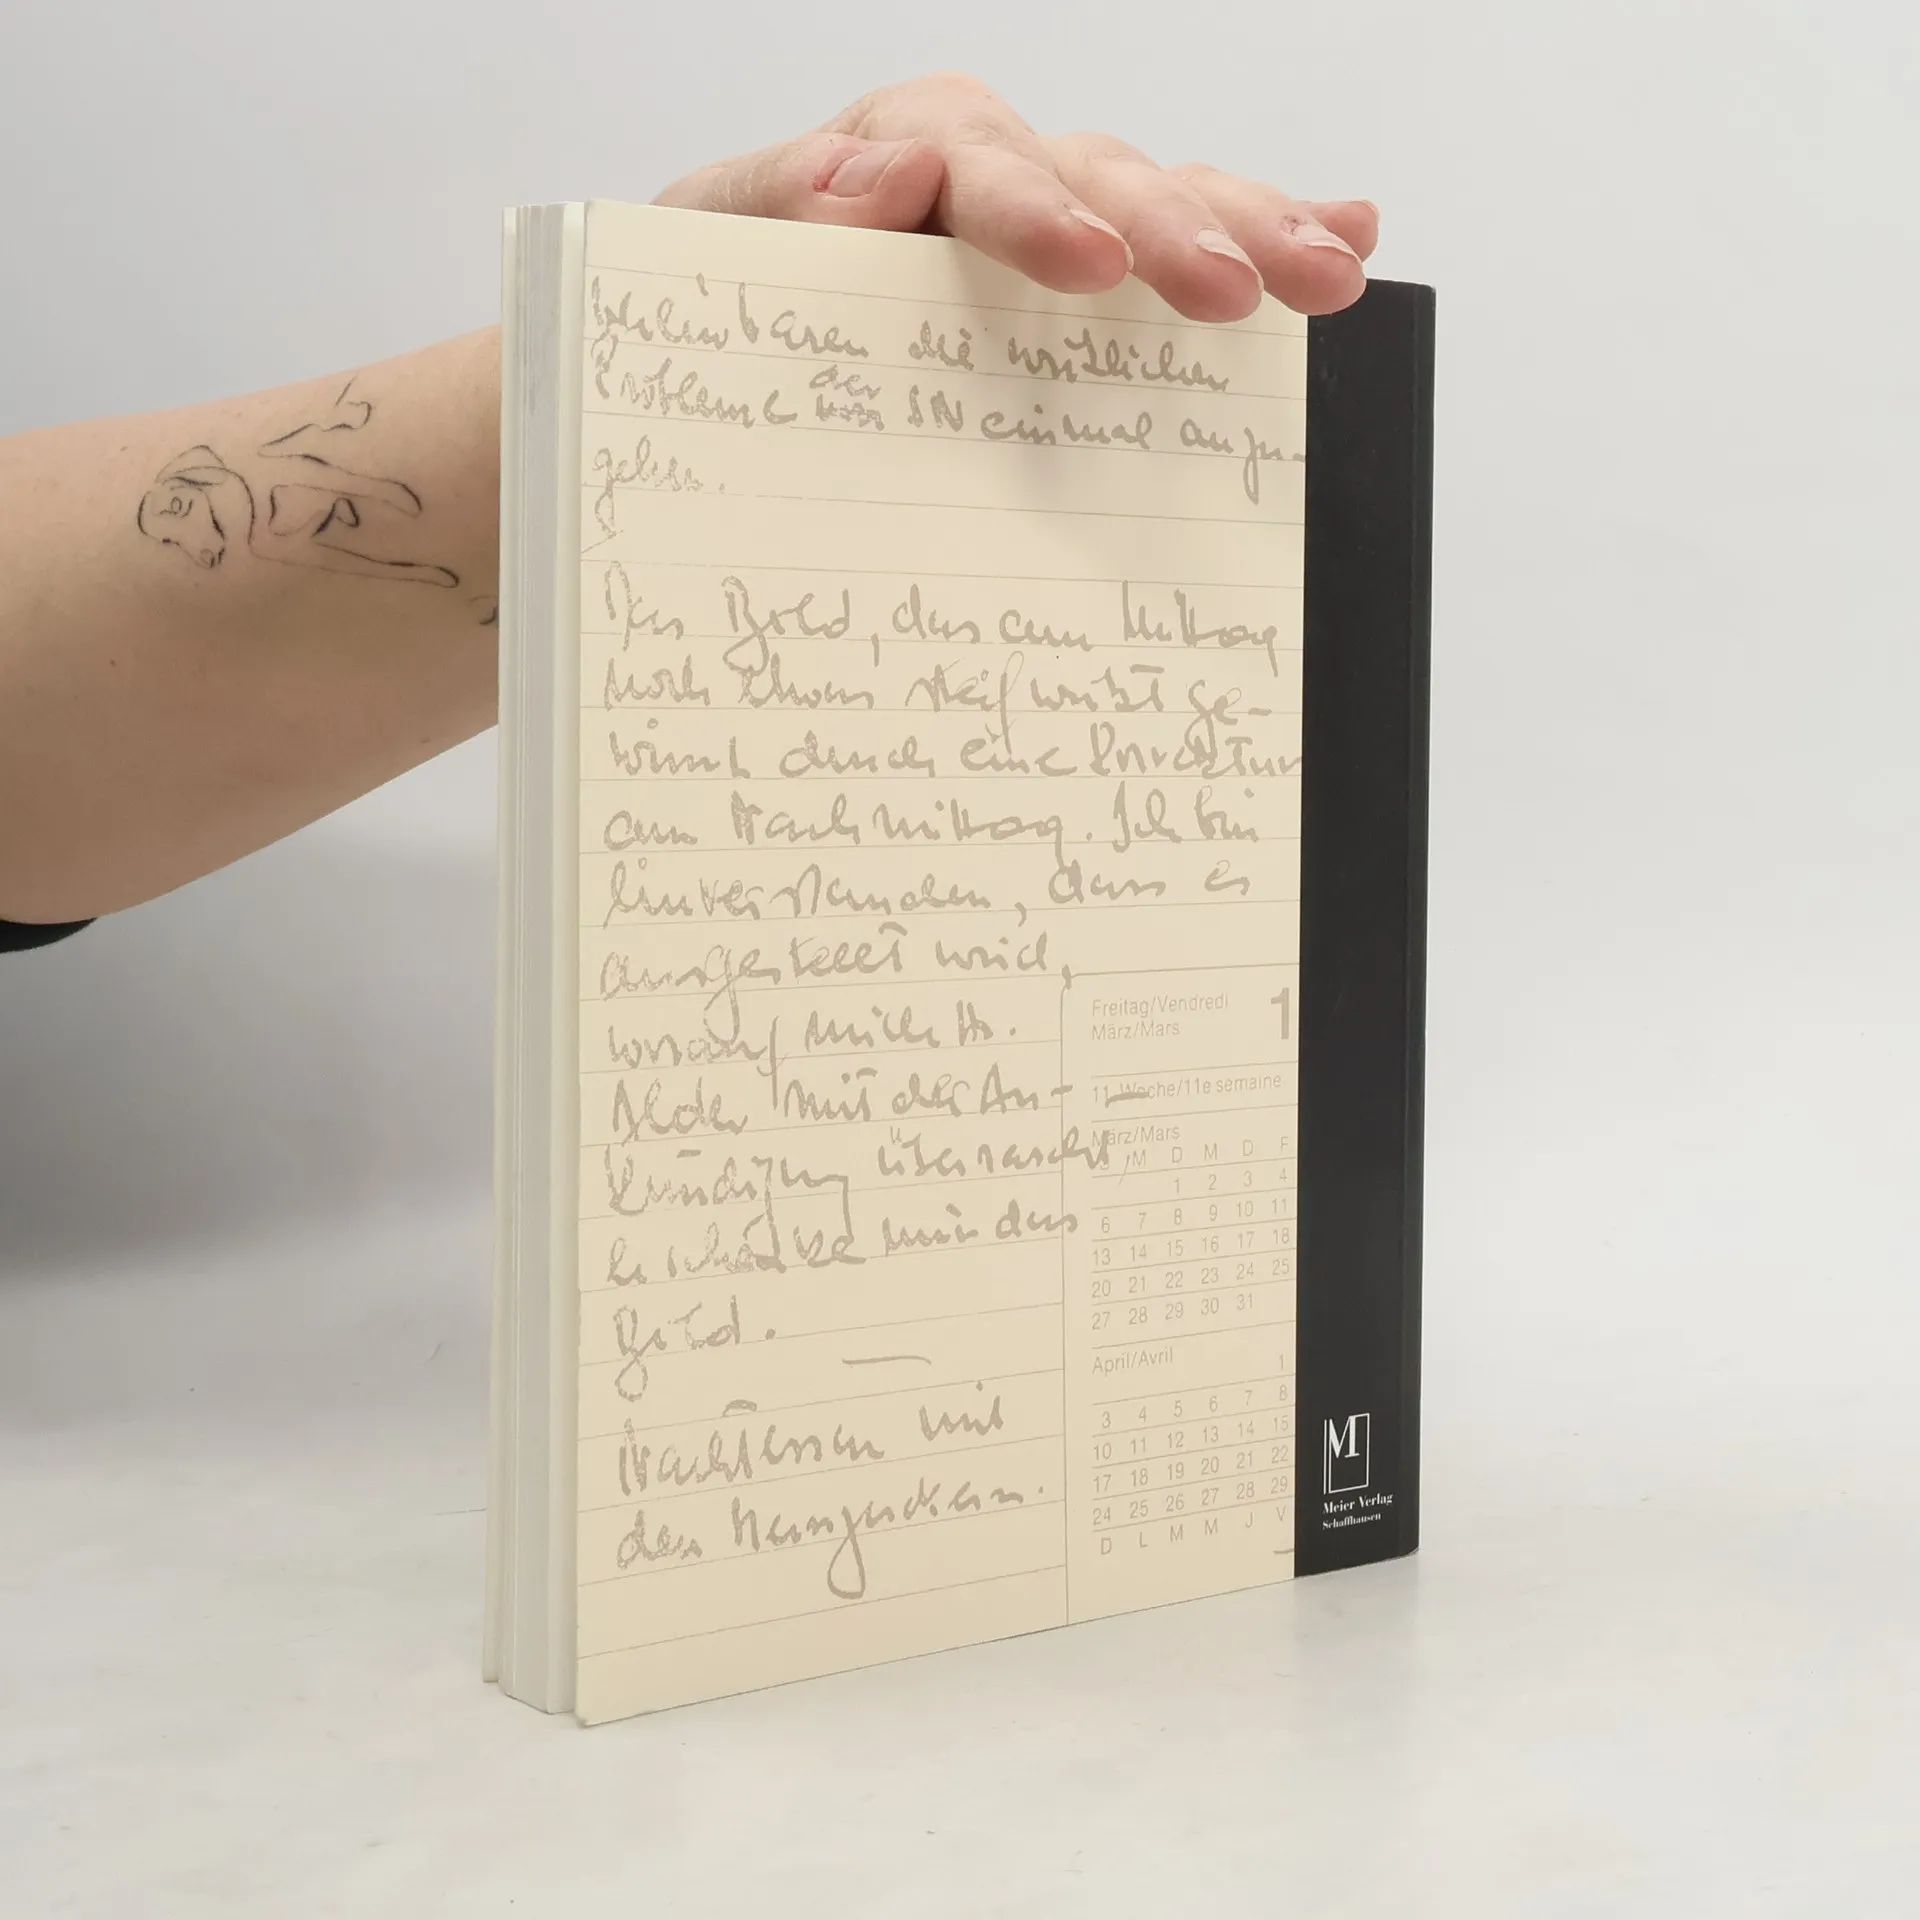 die wirklichen
Probleme der SN einmal anzu-
gehen.
Das Bild, das am Mittag
noch etwas steif wirkt ge-
winnt durch eine Korrektur
am Nachmittag. Ich bin
einverstanden, dass es
ausgestellt wird,
worauf mich H.
mit der An-
kündigung überrascht,
er schenke mir das
Bild.
Nachtessen mit
den
Freitag/Vendredi 1
März/Mars
11. Woche/11e semaine
März/Mars
S M D M D F
1 2 3 4
6 7 8 9 10 11
13 14 15 16 17 18
20 21 22 23 24 25
27 28 29 30 31
April/Avril
1
3 4 5 6 7 8
10 11 12 13 14 15
17 18 19 20 21 22
24 25 26 27 28 29
D L M M J V
M
Meier Verlag
Schaffhausen